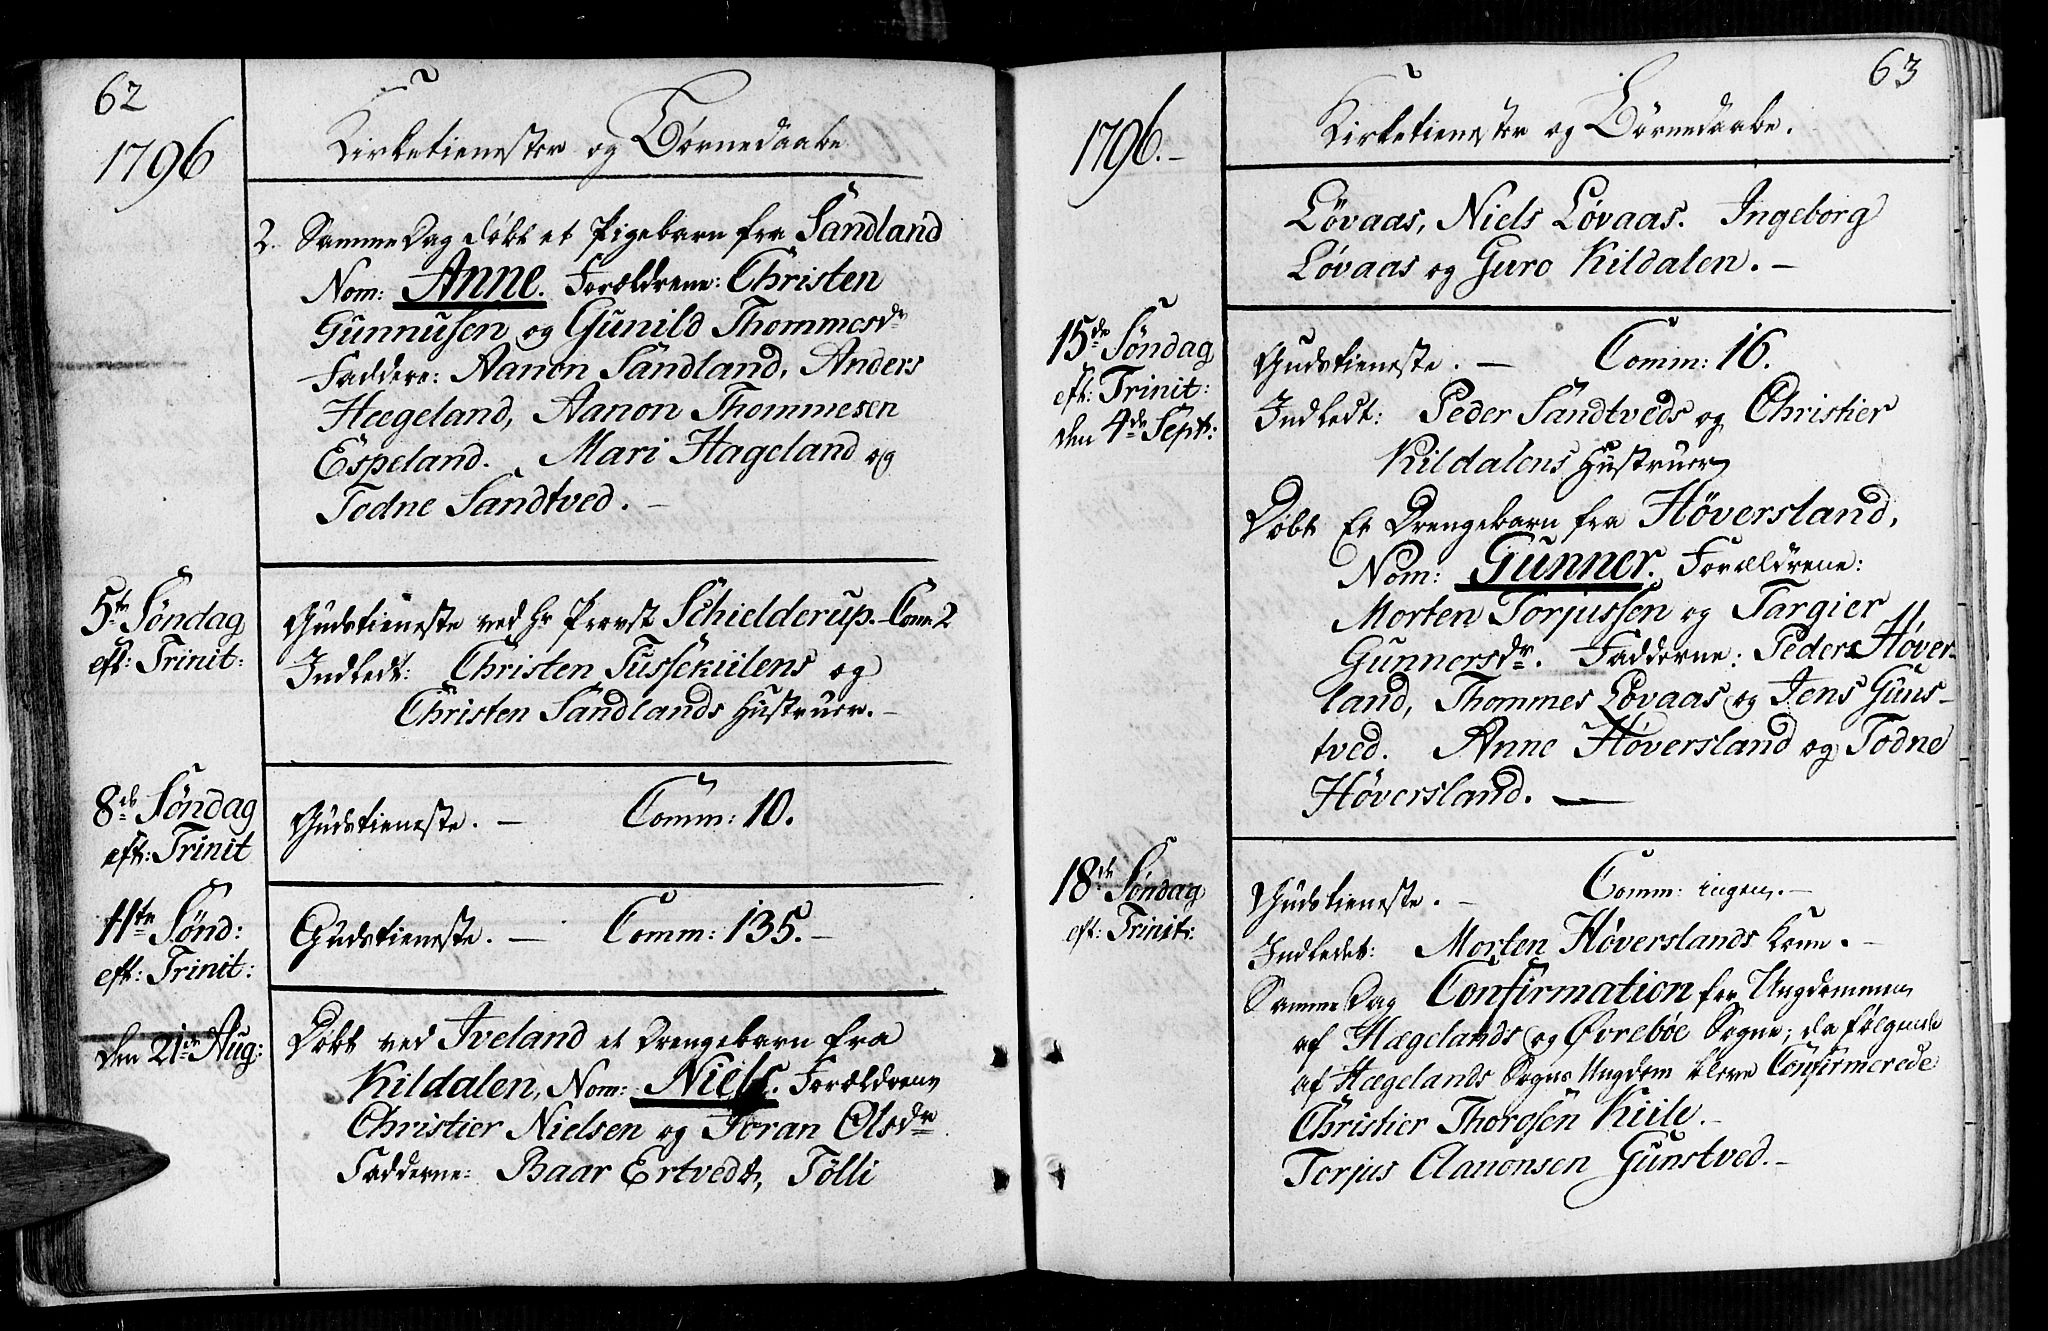 62
1796
Kirketienester og Børnedaabe
2. Samme Dag døbt et Pigebarn fra Sandland
Nom: Anne. Forældrene: Christen
Gunnufen og Gunild Thommesdr
Faddere: Aanon Sandland, Anders
Hægeland, Aanon Thommesen
Espeland. Mari Hageland og
Todne Sandtved. –
5te Søndag
eft: Trinit:
Gudstieneste ved Hr Provst Schielderup. – Com: 2
Indledt: Christen Tussekiilens og
Christen Sandlands Hustruer. –
8de Søndag
eft: Trinit
Gudstieneste. – Comm: 10.
11te Sønd:
eft: Trinit:
Gudstieneste. – Comm: 135. –
den 21de Aug:
Døbt ved Iveland et Drengebarn fra
Kildalen, Nom: Niels. Forældrene
Christier Nielsen og Joran Olsdr
Fadderne: Baar Ertvedt, Tölli
63
1796. –
Kirketienester og Börnedaabe.
Løvaas, Niels Løvaas. Ingeborg
Løvaas og Guro Kildalen. –
15de Søndag
eft: Trinit:
den 4de Sept:
Gudstieneste. – Comm: 16.
Indledt: Peder Sandtveds og Christier
Kildalens Hustruer
Døbt Et Drengebarn fra Höversland,
Nom: Gunner. Forældrene:
Morten Torjussen og Targier
Gunnersdr. Fadderne: Peder Höver-
land, Thommes Løvaas og Jens Guns-
tved. Anne Höversland og Todne
Höversland. –
18de Søndag
eft: Trinit:
Gudstieneste. – Comm: ingen. –
Indledet: Morten Höverslands Kone. –
Samme Dag Confirmation for Ungdommen
af Hægelands og Øvrebøe Sogne; da følgende
af Hægelands Sogns Ungdom bleve Confirmerede
Christier Thorosen Kiile. –
Torjus Aanonsen Gunstved. –